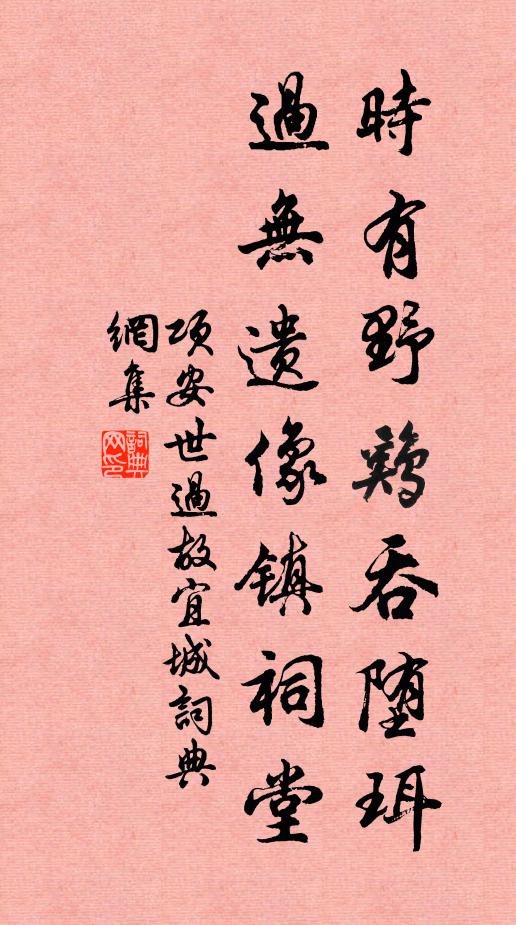 時有野鷄吞堕珥
過無遺像鎮祠堂
項安世過故宜城詞典
網集
詞典網印